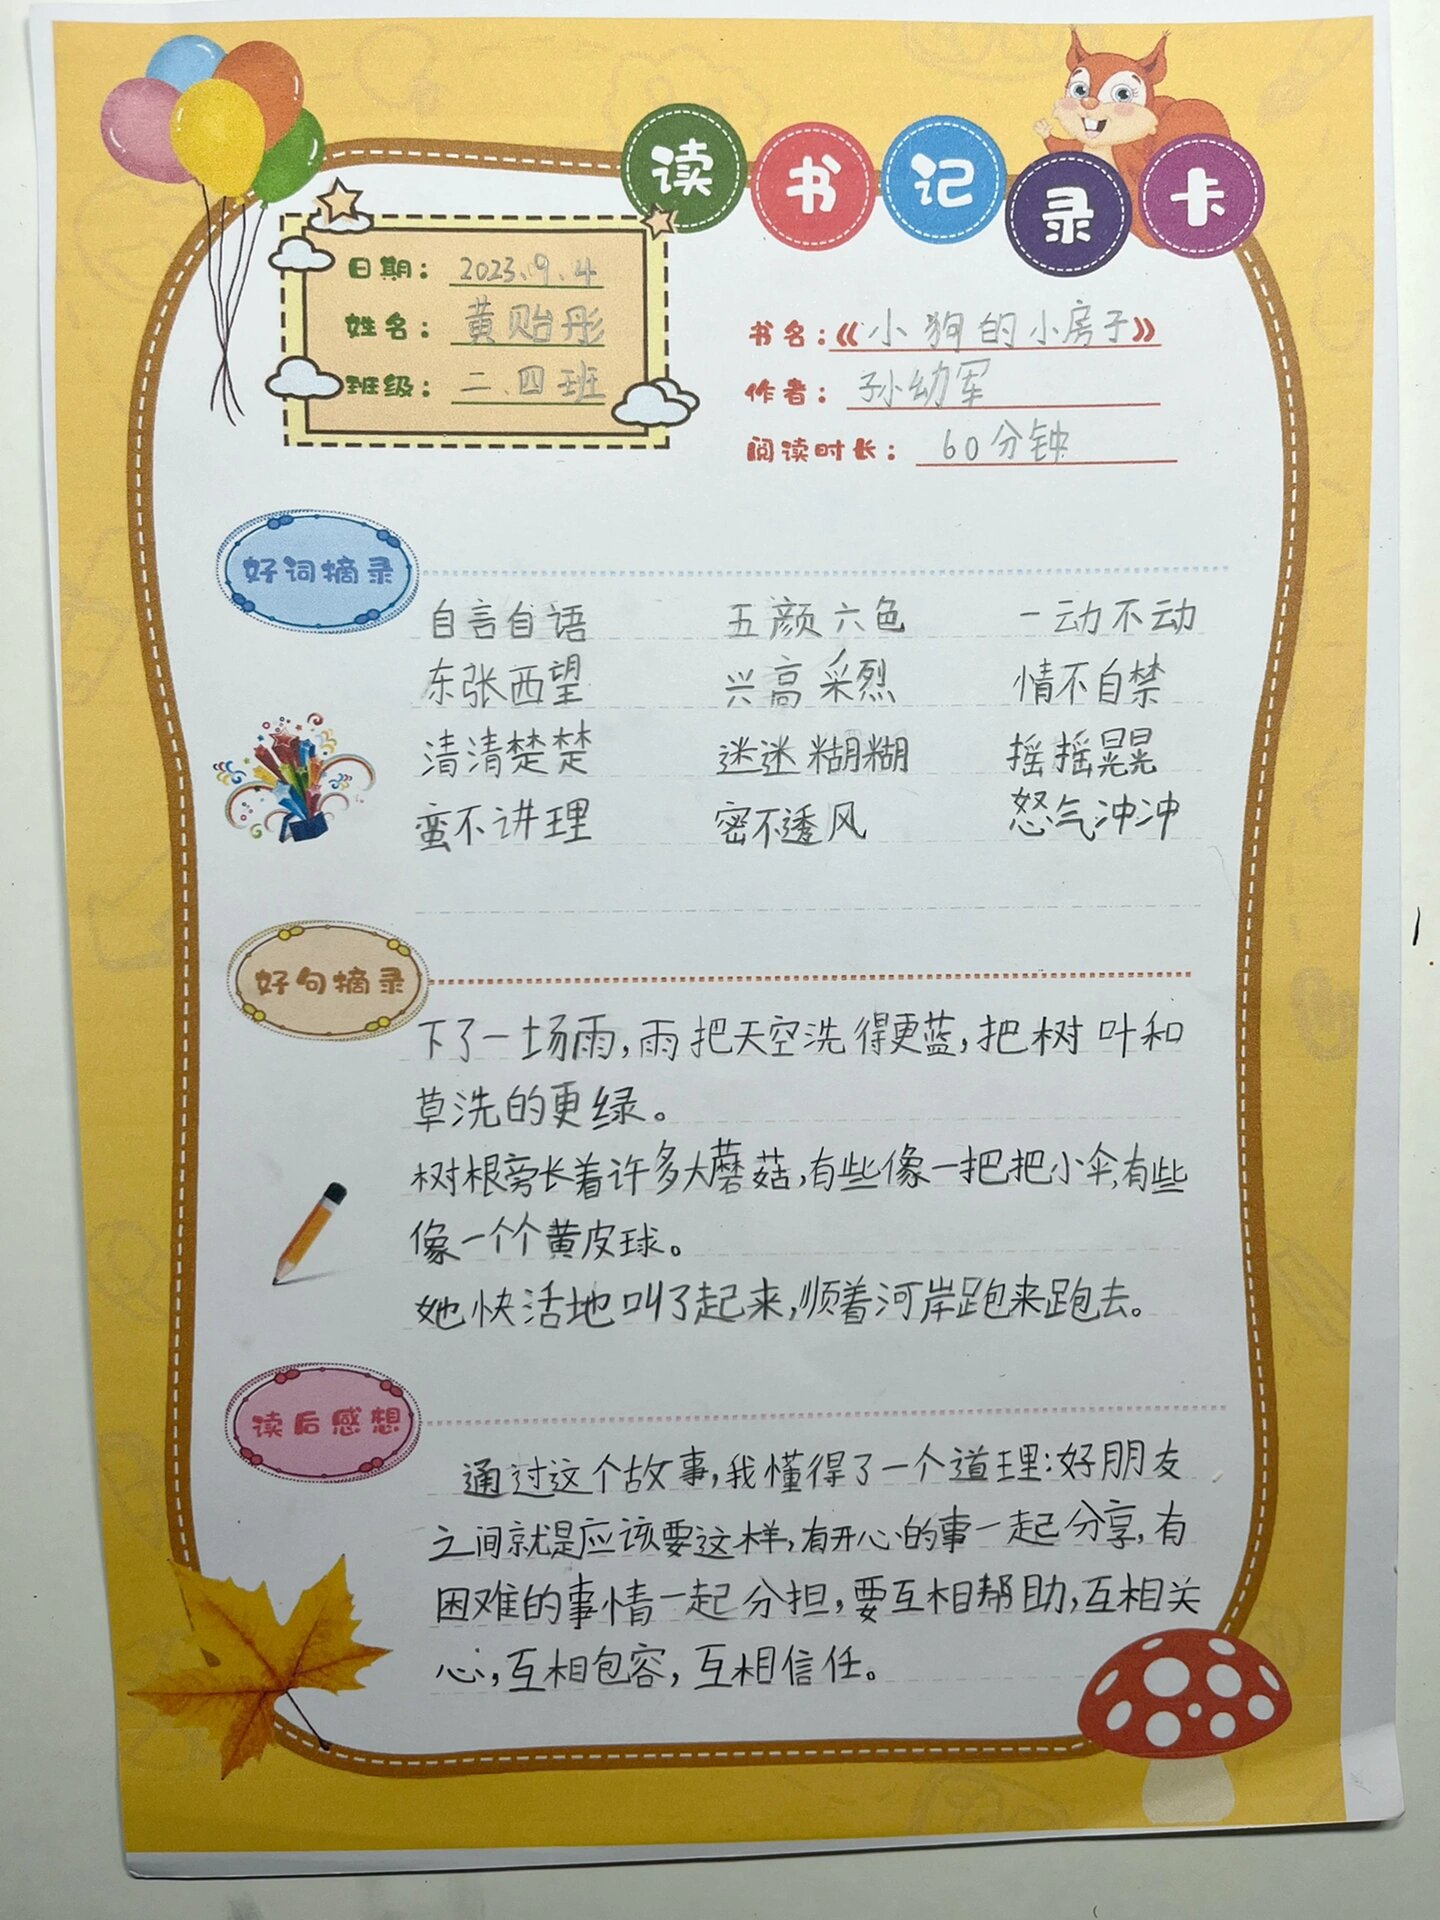 读书记录卡
日期：2023.9.4
姓名：黄贻彤
班级：二.四班
书名：《小狗的小房子》
作者：孙幼军
阅读时长：60分钟
好词摘录
自言自语 五颜六色 一动不动
东张西望 兴高采烈 情不自禁
清清楚楚 迷迷糊糊 摇摇晃晃
蛮不讲理 密不透风 怒气冲冲
好句摘录
下了一场雨，雨把天空洗得更蓝，把树叶和
草洗的更绿。
树根旁长着许多大蘑菇，有些像一把把小伞，有些
像一个个黄皮球。
她快活地叫了起来，顺着河岸跑来跑去。
读后感想
通过这个故事，我懂得了一个道理：好朋友
之间就是应该要这样，有开心的事一起分享，有
困难的事情一起分担，要互相帮助，互相关
心，互相包容，互相信任。